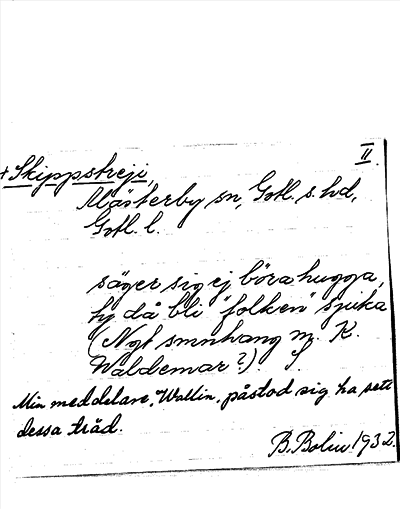 II
+ Skippstreji,
Mästerby sn, Gotl. s. hd,
Gotl. l.
säger sig ej böra hugga,
ty då bli "folken" sjuka
(Ngt smnhang m. K.
Waldemar?).
Min meddelare, Wallin, påstod sig ha sett
dessa träd.
B. Bolin 1932.